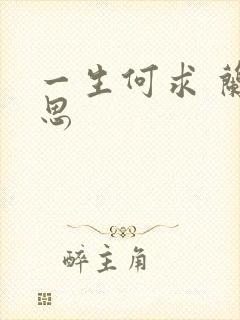 一生何求 蘭
思
醉主角